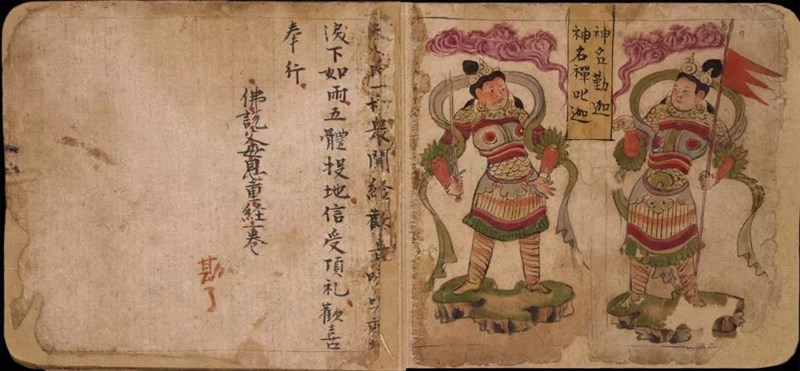 神名勤迦
神名禪叱迦
一切衆聞經歡喜
淚下如雨五體投地信受頂礼歡喜
奉行
佛說父母恩重經一卷
勘了